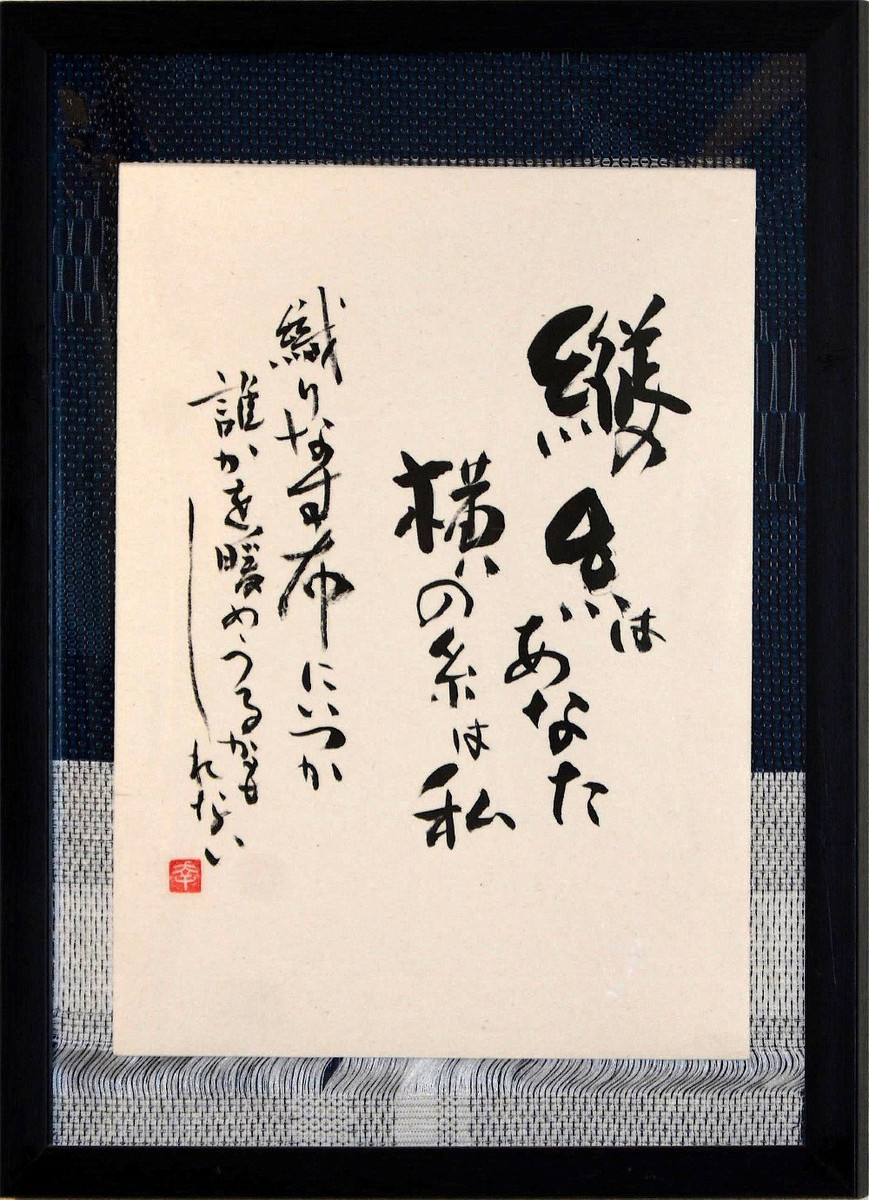 縦の糸はあなた
横の糸は私
織りなす布にいつか
誰かを暖めうるかも
しれない
幸